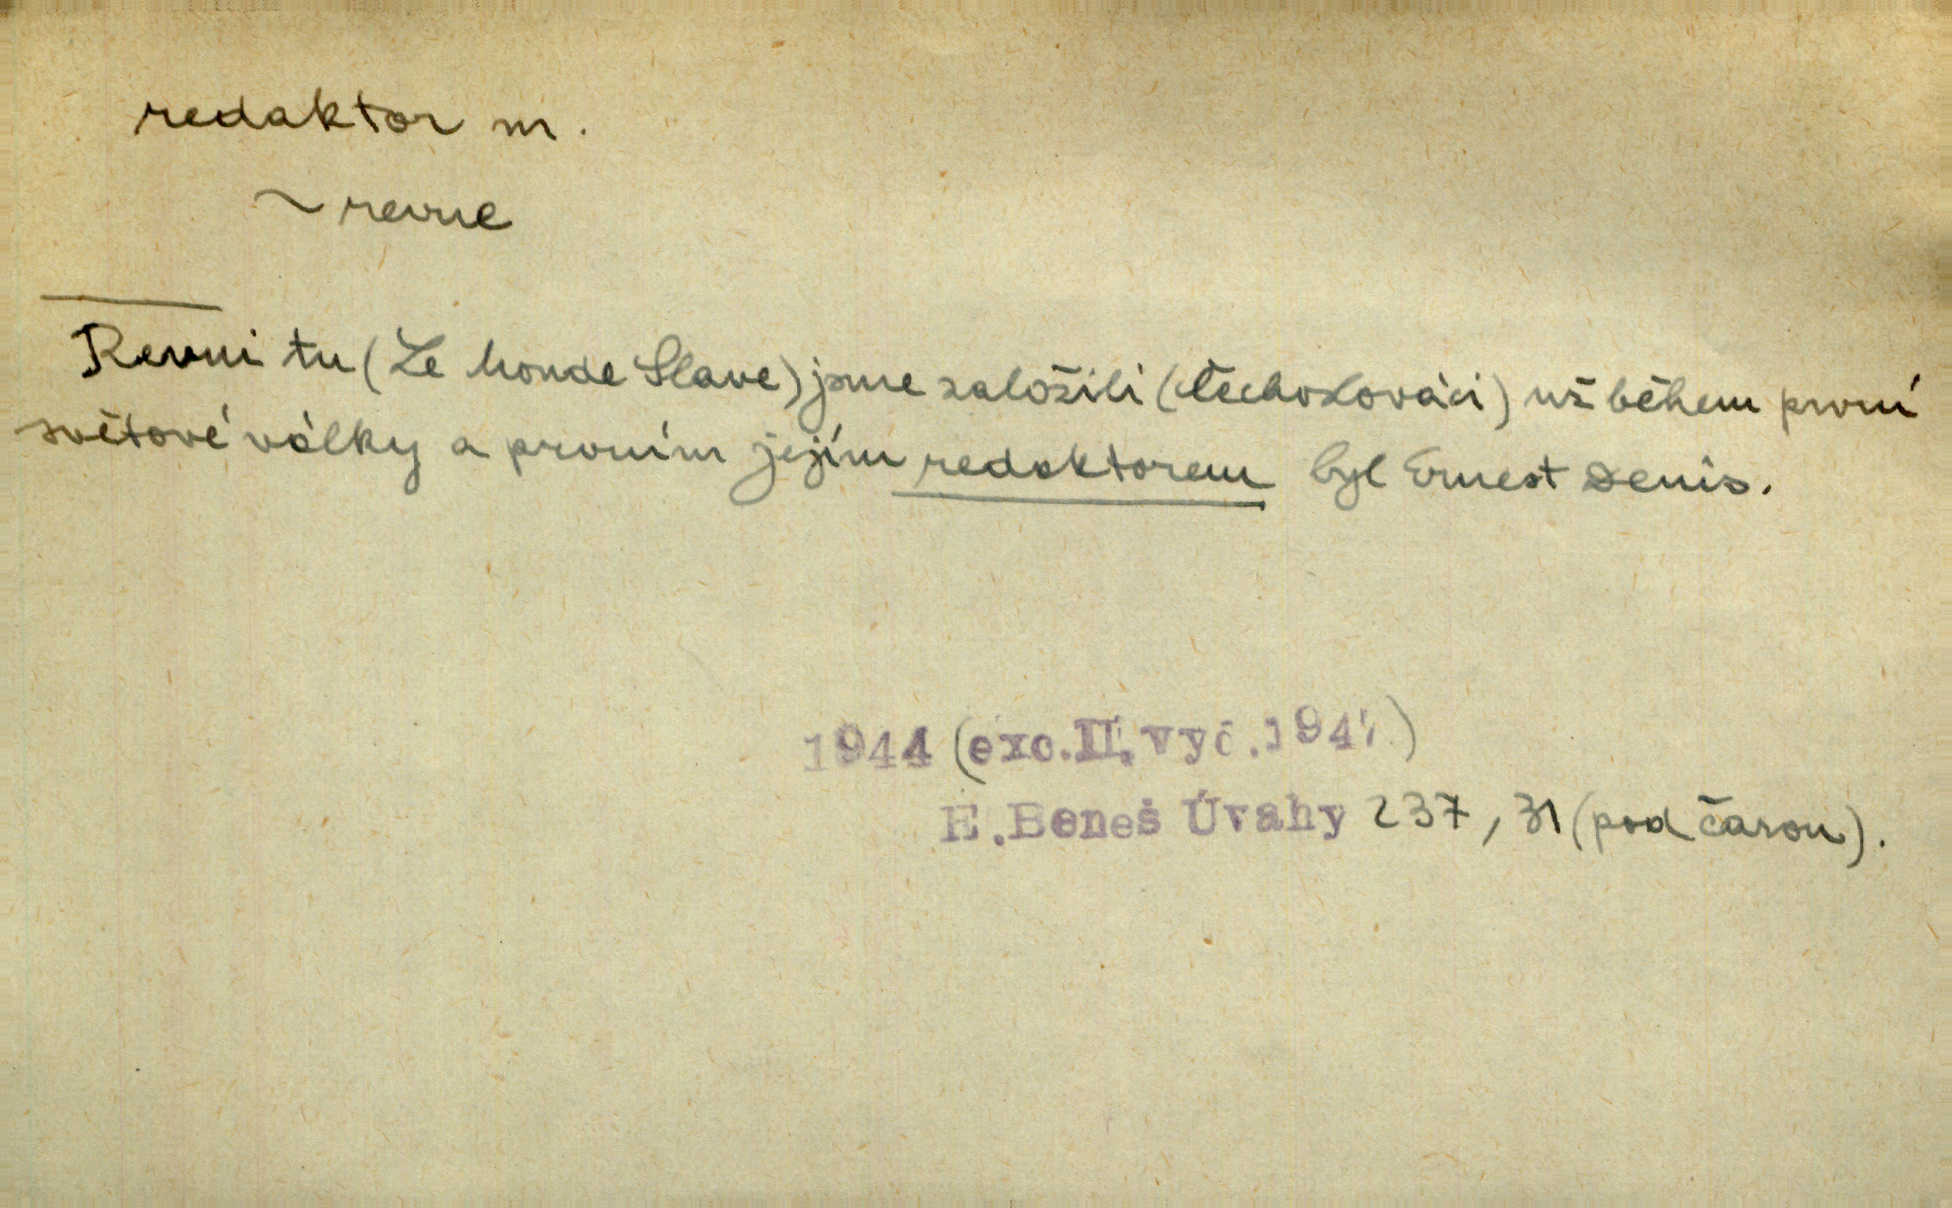 redaktor m.
~ revue
Revui tu (Le Monde Slave) jsme založili (Čechoslováci) už během první
světové války a prvním jejím redaktorem byl Ernest Denis.
1944 (exc. II. vyd. 1947)
E. Beneš Úvahy 237, 31 (pod čarou).